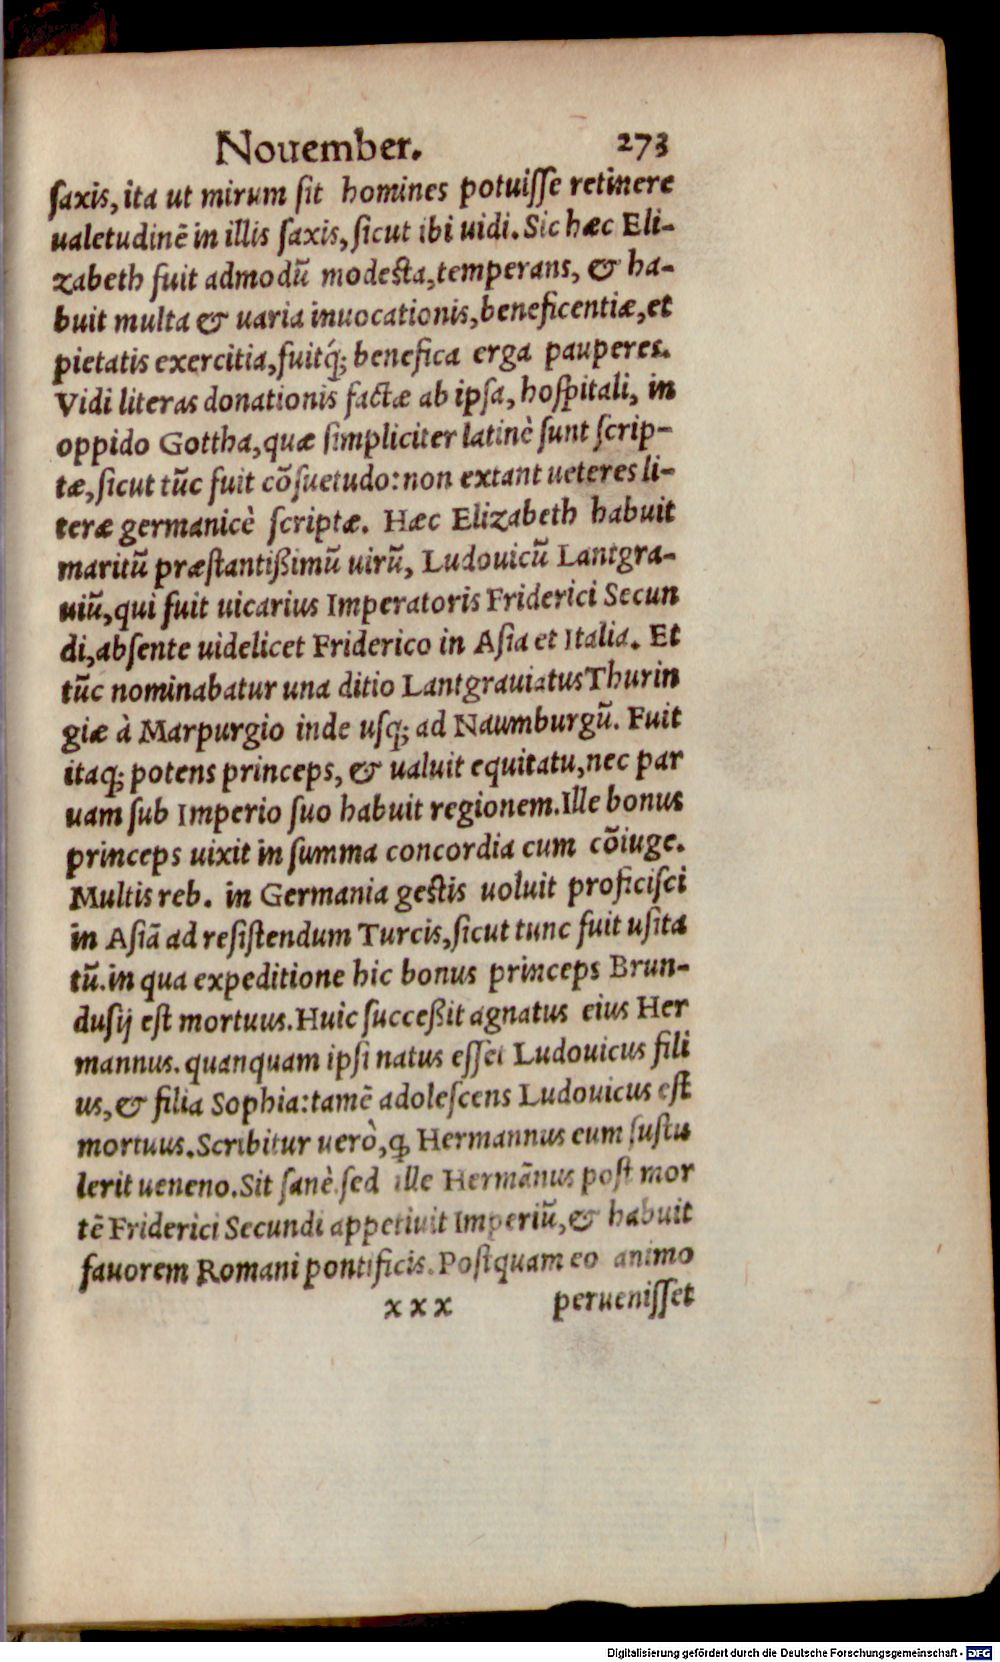 Nouember. 273
ſaxis, ita ut mirum ſit homines potuiſſe retinere
ualetudinē in illis ſaxis, ſicut ibi uidi. Sic hæc Eli-
zabeth fuit admodū modesta, temperans, & ha-
buit multa & uaria inuocationis, beneficentiæ, et
pietatis exercitia, fuitq́; benefica erga pauperes.
Vidi literas donationis factæ ab ipſa, hoſpitali, in
oppido Gottha, quæ ſimpliciter latinè ſunt ſcrip-
tæ, ſicut tūc fuit cōſuetudo: non extant ueteres li-
teræ germanicè ſcriptæ. Hæc Elizabeth habuit
maritū præſtantißimū uirū, Ludouicū Lantgra-
uiū, qui fuit uicarius Imperatoris Friderici Secun
di, abſente uidelicet Friderico in Aſia et Italia. Et
tūc nominabatur una ditio Lantgrauiatus Thurin
giæ à Marpurgio inde uſq; ad Naumburgū. Fuit
itaq; potens princeps, & ualuit equitatu, nec par
uam ſub Imperio ſuo habuit regionem. Ille bonus
princeps uixit in ſumma concordia cum cōiuge.
Multis reb. in Germania gestis uoluit proficiſci
in Aſiā ad reſiſtendum Turcis, ſicut tunc fuit uſita
tū. in qua expeditione hic bonus princeps Brun-
duſij eſt mortuus. Huic ſucceßit agnatus eius Her
mannus. quanquam ipſi natus eſſet Ludouicus fili
us, & filia Sophia: tamē adoleſcens Ludouicus eſt
mortuus. Scribitur uerò, ꝙ Hermannus eum ſuſtu
lerit ueneno. Sit ſanè. ſed ille Hermānus poſt mor
tē Friderici Secundi appetiuit Imperiū, & habuit
fauorem Romani pontificis. Poſtquam eo animo
x x x perueniſſet
Digitalisierung gefördert durch die Deutsche Forschungsgemeinschaft - DFG